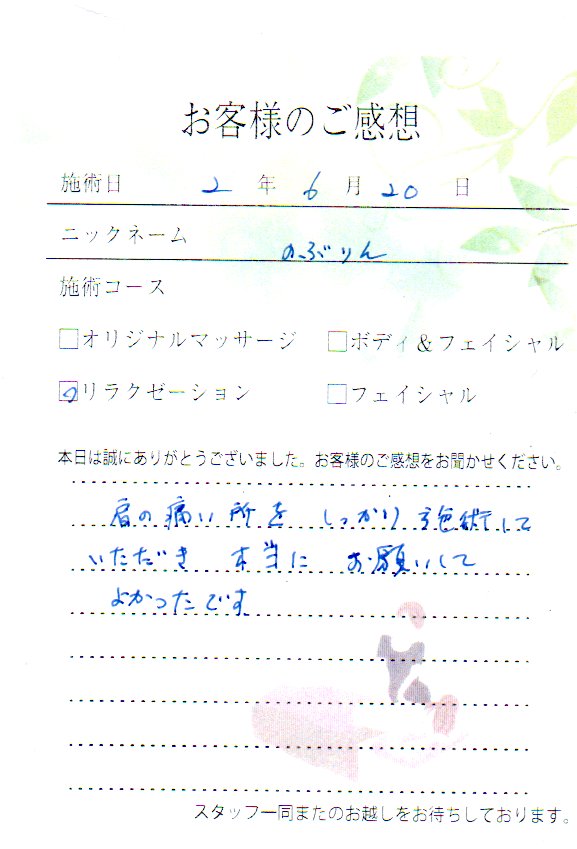 お客様のご感想
施術日 2 年 6 月 20 日
ニックネーム のぶりん
施術コース
□オリジナルマッサージ □ボディ&フェイシャル
☑リラクゼーション □フェイシャル
本日は誠にありがとうございました。お客様のご感想をお聞かせください。
肩の痛い所を しっかり施術して
いただき 本当に お願いして
よかったです
スタッフ一同またのお越しをお待ちしております。